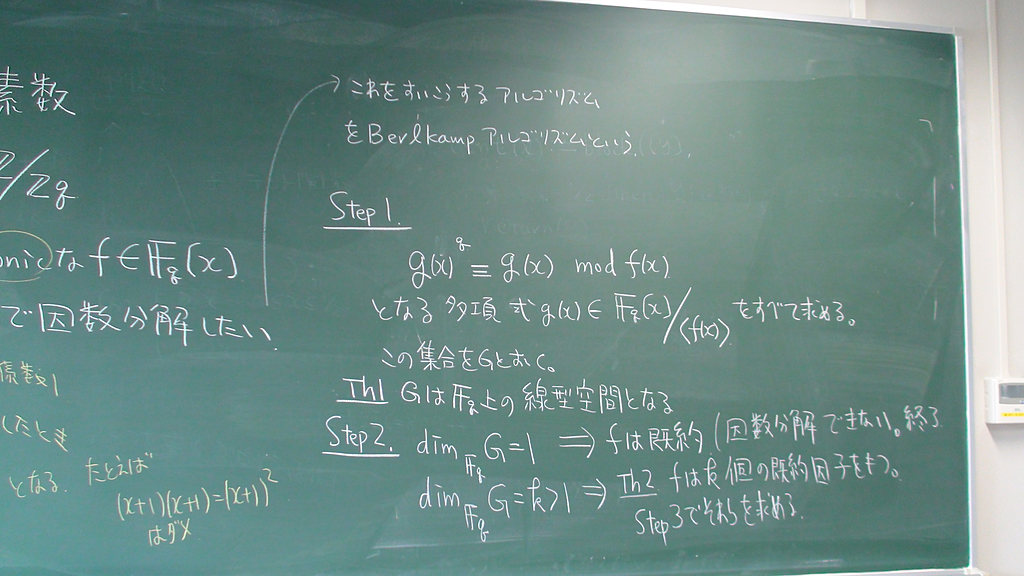 素数
Z/Zq
onicなf∈𝔽q(x)
で因数分解したい.
係数1
したとき
となる. たとえば
(x+1)(x+1)=(x+1)²
はダメ
これをすいこうするアルゴリズム
をBerlkampアルゴリズムという.
Step1.
g(x)^q ≡ g(x) mod f(x)
となる多項式g(x)∈𝔽q(x)/〈f(x)〉をすべて求める。
この集合をGとおく。
Th1 Gは𝔽q上の線型空間となる
Step2. dim𝔽q G=1 ⇒ fは既約(因数分解できない)。終了
dim𝔽q G=k>1 ⇒ Th2 fはk個の既約因子をもつ。
Step3でそれらを求める.